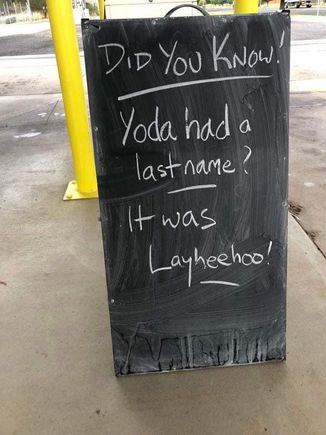 DID YOU KNOW!
Yoda had a
last name?
It was
Layheehoo!